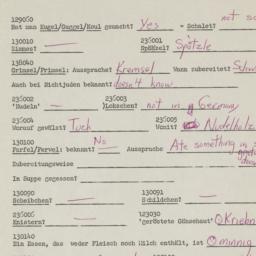 129060 not so
Hat man Kugel/Guggel/Koul gemacht? Yes = Schalet?
130010 236001
Zimmes? — Spätzel? Spätzle
138040
Grimsel/Primsel: Aussprache? Kremsel Wann zubereitet?
Auch bei Nichtjuden bekannt? doesn't know
236002 236003
"Nudeln" — |Lokschen? not in Germany
236004 236005
Vorauf gewälzt? Tuch Womit? Nudelholz
130100
Farfel/Pervel: bekannt? No — Aussprache Ate something in
Zubereitungsweise
In Suppe gegessen?
130090 130091
Scheibchen? — Schildchen? —
236006 123030
Knistern? — "geröstete Gänsehaut"
130140
Ein Essen, das weder Fleisch noch Milch enthält, ist